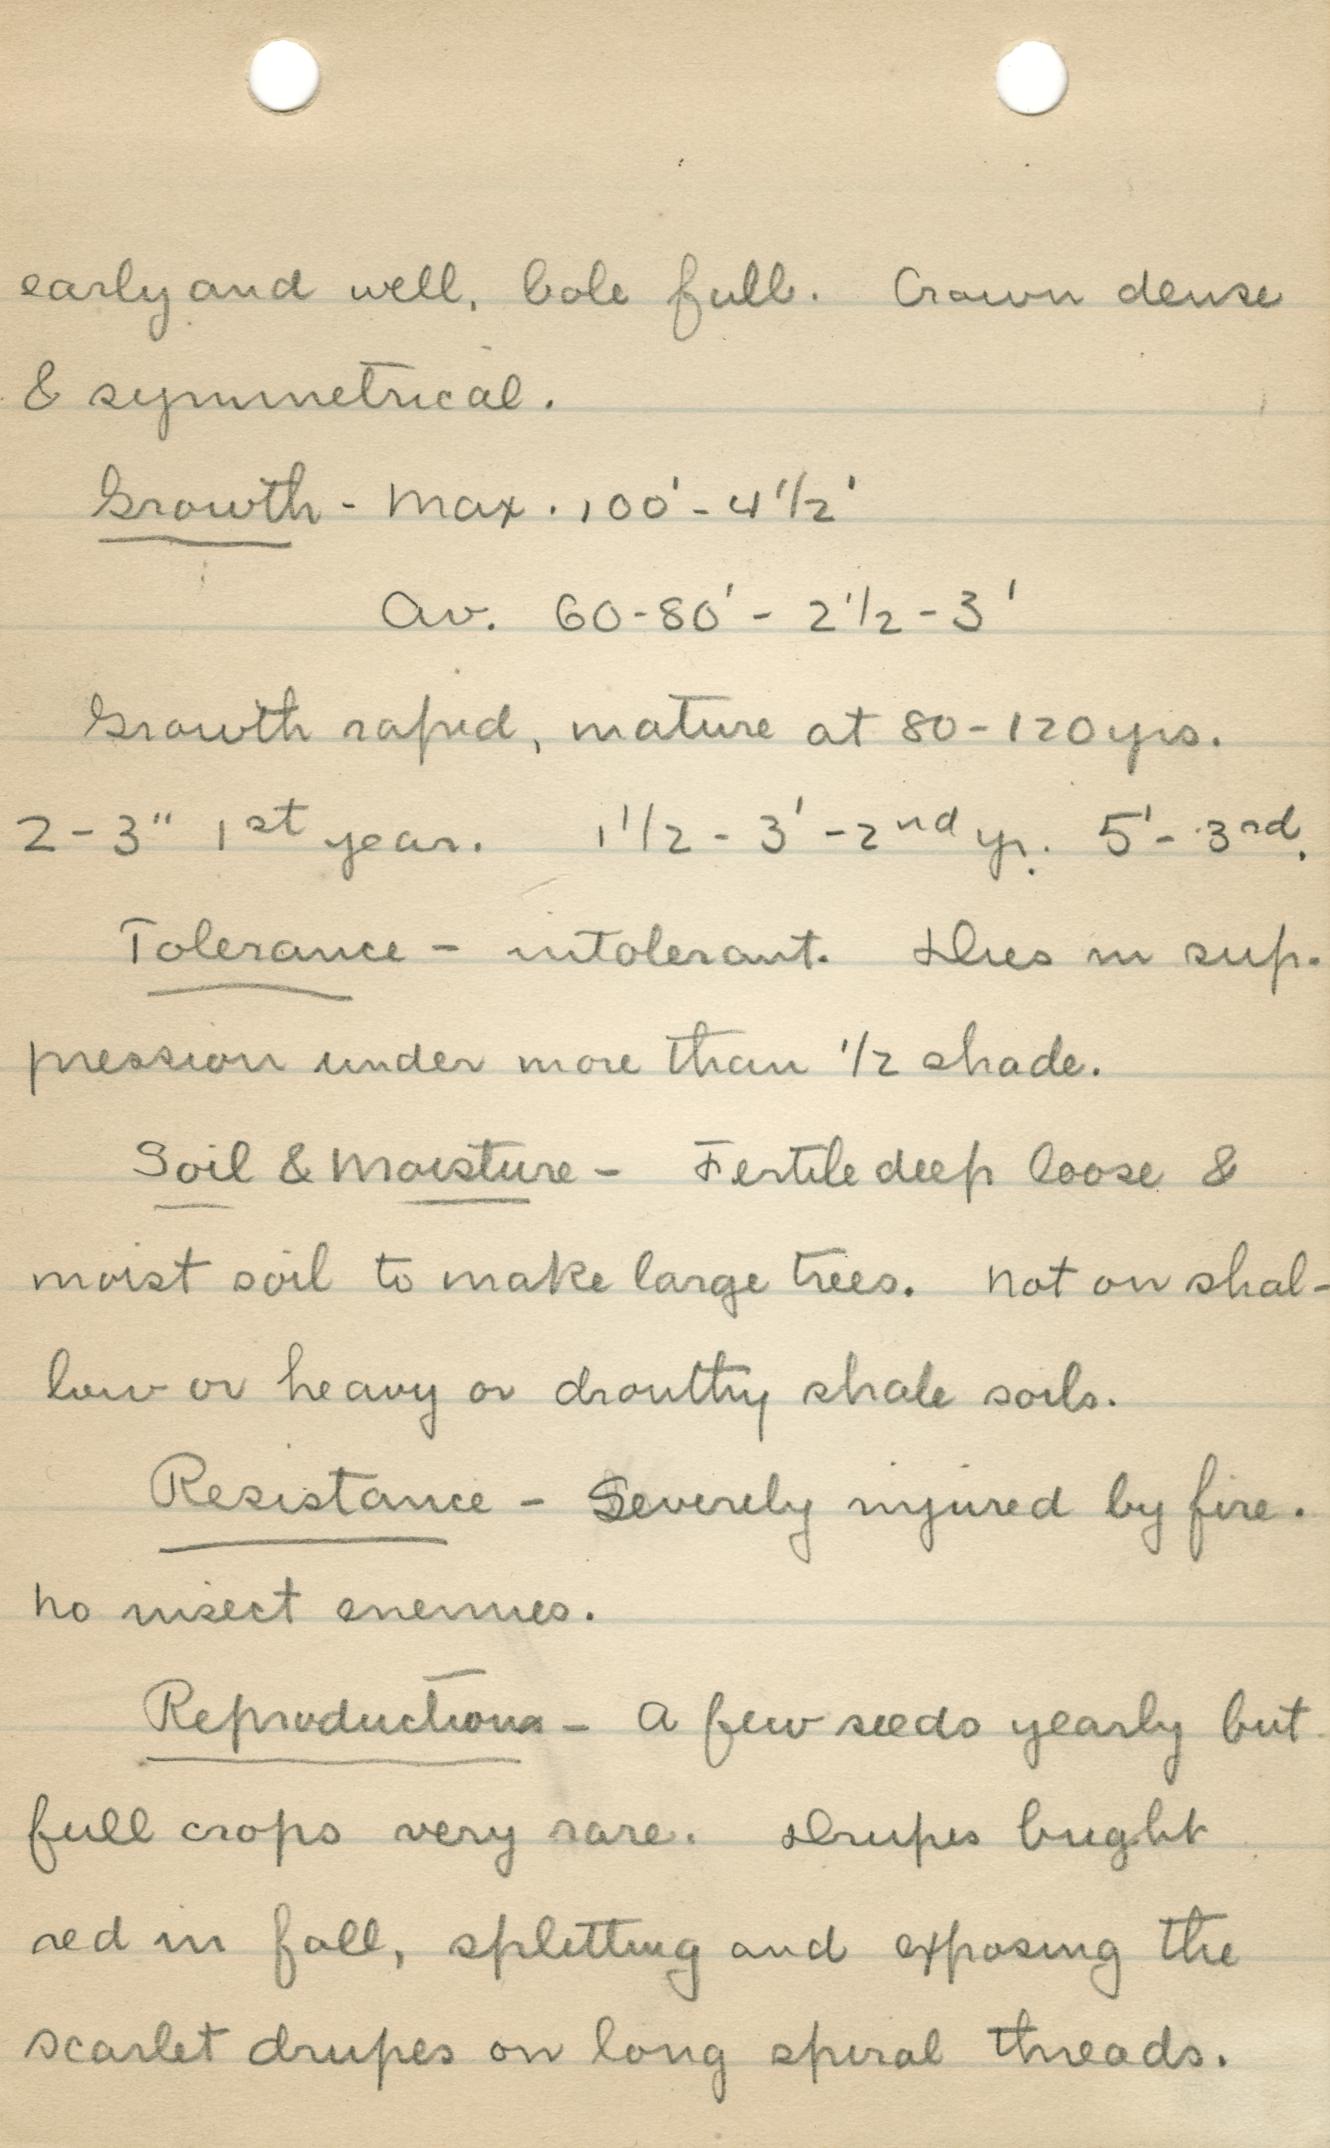 early and well, bole full. Crown dense
& symmetrical.
Growth - Max. 100' - 4 1/2'
Av. 60-80' - 2 1/2 - 3'
Growth rapid, mature at 80-120 yrs.
2-3" 1st year. 1 1/2 - 3' - 2nd yr. 5' - 3rd.
Tolerance - intolerant. Dies in sup-
pression under more than 1/2 shade.
Soil & Moisture - Fertile deep loose &
moist soil to make large trees. Not on shal-
low or heavy or drouthy shale soils.
Resistance - Severely injured by fire.
No insect enemies.
Reproduction - A few seeds yearly but
full crops very rare. Drupes bright
red in fall, splitting and exposing the
scarlet drupes on long spiral threads.